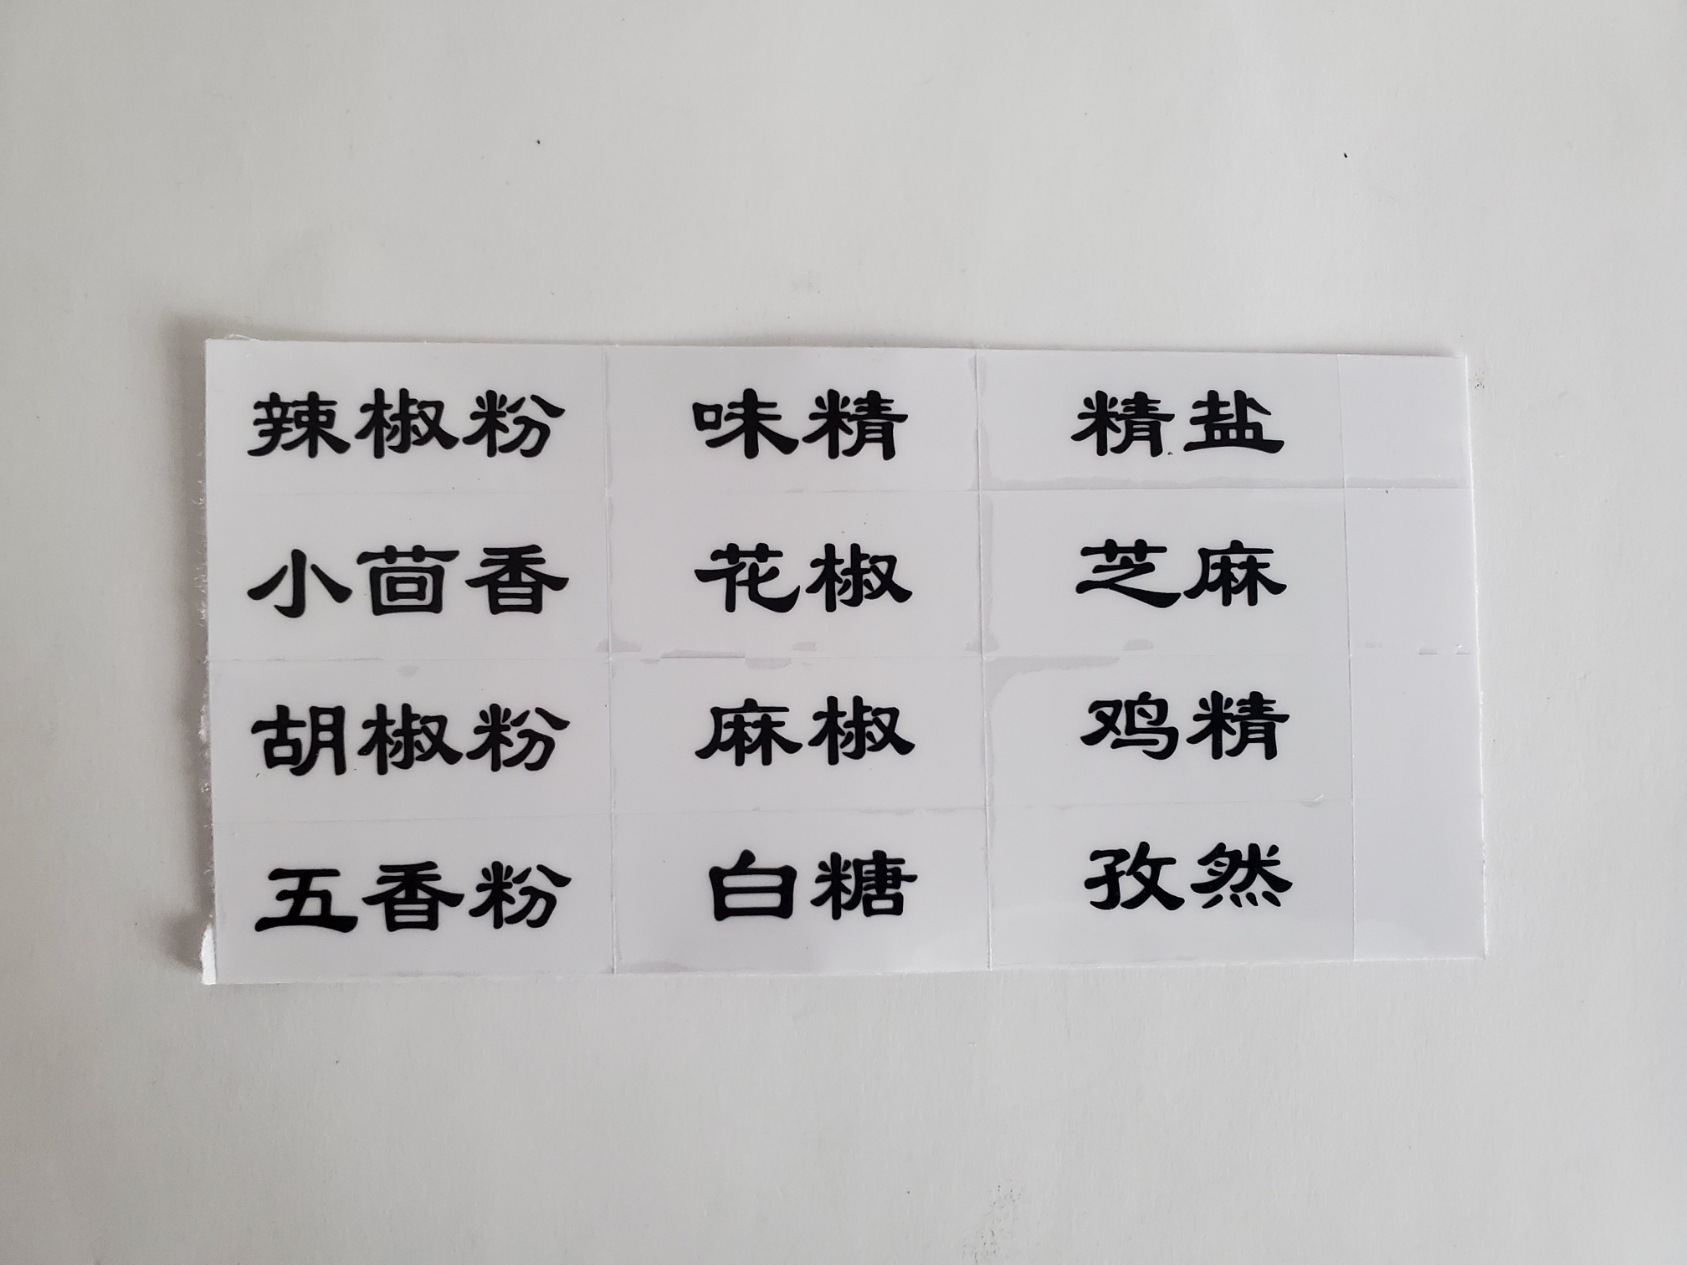 辣椒粉 味精 精盐
小茴香 花椒 芝麻
胡椒粉 麻椒 鸡精
五香粉 白糖 孜然